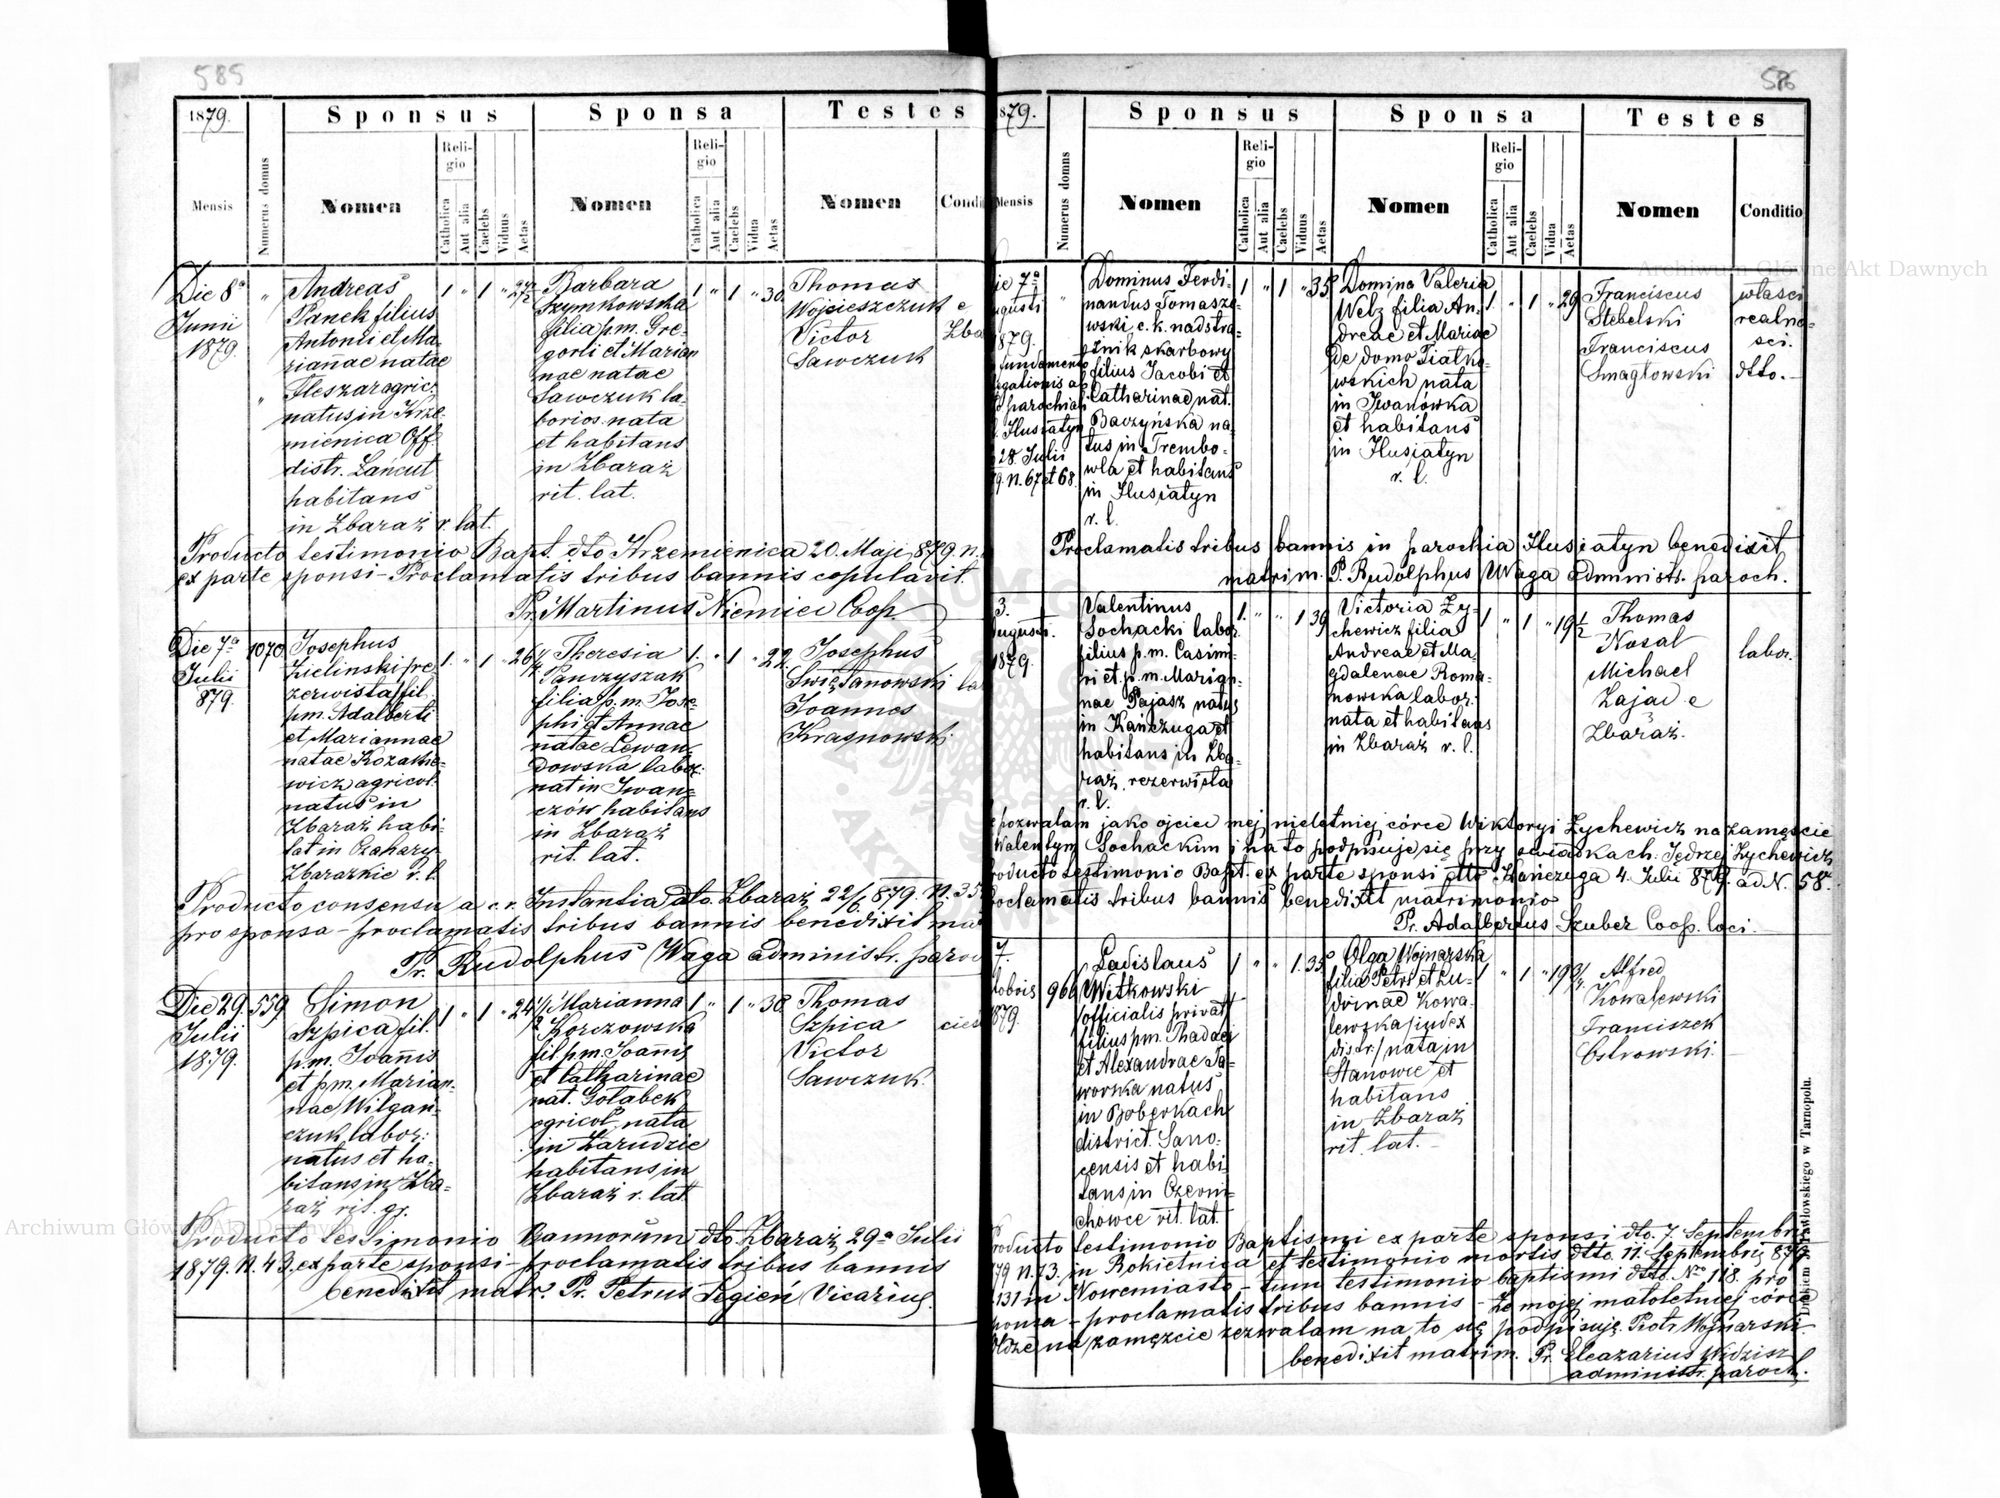 585
1879.
Sponsus
Sponsa
Testes
Mensis
Numerus domus
Nomen
Religio
Catholica
Aut alia
Caelebs
Viduus
Aetas
Nomen
Religio
Catholica
Aut alia
Caelebs
Vidua
Aetas
Nomen
Condi
Die 8ª
Junii
1879.
Andreas
Panek filius
Antonii et Ma-
riannae natae
Fleszar agric.
natus in Krze-
mienica Off.
distr. Łańcut
habitans
in Zbaraż r. lat.
1 " 1 " 27½
Barbara
Szymkowska
filia p.m. Gre-
gorii et Marian
nae natae
Sawczuk la-
borios. nata
et habitans
in Zbaraż
rit. lat.
1 " 1 " 30
Thomas
Wojcieszczuk e
Victor Zba
Sawczuk
Producto testimonio Bapt. dto Krzemienica 20. Maji 879. N.
ex parte sponsi - Proclamatis tribus bannis copulavit.
Pr. Martinus Niemiec Coop.
Die 7ª
Julii
879.
1070
Josephus
Zieliński /re-
zerwista/ fil.
p.m. Adalberti
et Mariannae
natae Kozakie-
wicz agricol.
natus in
Zbaraż habi-
tat in Czahary
Zbarazkie r. l.
1. " 1 " 26¼
Theresia
Panczyszak
filia p.m. Jose-
phi et Annae
natae Lewan-
dowska labor.
nat in Iwan-
czów habitans
in Zbaraż
rit. lat.
1. " 1 " 22.
Josephus
Świętanowski la
Joannes
Krasnowski
Producto consensu a c. r. Instantia dto. Zbaraż 22/6 879. N. 35
pro sponsa - proclamatis tribus bannis benedixit ma
Pr. Rudolphus Waga administr. paroc
Die 29.
Julii
1879.
559
Simon
Szpica fil.
p.m. Joannis
et p.m. Marian-
nae Wilgań-
czuk labor.
natus et ha-
bitans in Zba-
raż rit. gr.
1 " 1 " 24½
Marianna
Korczowska
fil p.m. Joannis
et Catharinae
nat. Gołąbek
agricol. nata
in Zarudzie
habitans in
Zbaraż r. lat
1 " 1 " 30
Thomas
Szpica cies
Victor
Sawczuk.
Producto testimonio Bannorum dto Zbaraż 29ª Julii
1879. N. 43. ex parte sponsi - proclamatis tribus bannis
benedixit matr. Pr. Petrus Łegień Vicarius.
586
1879.
Sponsus
Sponsa
Testes
Mensis
Numerus domus
Nomen
Religio
Catholica
Aut alia
Caelebs
Viduus
Aetas
Nomen
Religio
Catholica
Aut alia
Caelebs
Vidua
Aetas
Nomen
Conditio
ie 7ª
ugusti
879.
fundamento
legationis ab
parochiali
Husiatyn
28. Julii
9. N. 67 et 68.
Dominus Ferdi-
nandus Tomasze-
wski c. k. nadstra-
żnik skarbowy
filius Jacobi et
Catharinae nat.
Baczyńska na-
tus in Trembo-
wla et habitans
in Husiatyn
r. l.
1 " 1 " 35
Domina Valeria
Welz filia An-
dreae et Mariae
de domo Piatko-
wskich nata
in Iwanówka
et habitans
in Husiatyn
r. l.
1 " 1 " 29
Franciscus
Stebelski
Franciscus
Smagłowski
właści
realno-
sci.
dtto.
Proclamatis tribus bannis in parochia Husiatyn benedixit
matrim. P. Rudolphus Waga administr. paroch.
3.
ugusti.
1879.
Valentinus
Sochacki labor.
filius p.m. Casimi-
ri et p.m. Marian-
nae Pajasz natus
in Kańczuga et
habitans in Zba-
raż, rezerwista
r. l.
1. " " 1 39
Victoria Ży-
chewicz filia
Andreae et Ma-
gdalenae Roma-
nowska labor.
nata et habitans
in Zbaraż r. l.
1 " 1 " 19½
Thomas
Nosal
Michael
Zając e
Zbaraż.
labor.
pozwalam jako ojciec mej nieletniej córce Wiktoryi Zychewicz na zamęście
Walentym Sochackim i na to podpisuje się przy świadkach. Jędrzej Zychewicz
roducto testimonio Bapt. ex parte sponsi dtto Kańczuga 4. Julii 879. ad N. 58.
roclamatis tribus bannis benedixit matrimonio
Pr. Adalbertus Szuber Coop. loci.
7.
tobris
879.
966
Ladislaus
Witkowski
officialis privat
filius p.m. Thadaei
et Alexandrae Ja-
worska natus
in Boberkach
district. Sano-
censis et habi-
tans in Czerni-
chowce rit. lat.
1 " " 1. 35
Olga Wojnarska
filia Petri et Lu-
dvinae Kowa-
lewska /judex
distr./ nata in
Stanowce et
habitans
in Zbaraż
rit. lat.
1 " 1 " 19¾
Alfred
Kowalewski
Franciszek
Ostrowski.
roducto testimonio Baptismi ex parte sponsi dto. 7. Septembris
879 N. 73. in Rokietnica et testimonio mortis dtto. 11. Septembris 879.
131 in Nowemiasto - tum testimonio baptismi dtto. No 118. pro
ponsa - proclamatis tribus bannis - że mojej małoletniej córce
Oldze na zamęzcie zezwalam na to się podpisuję. Piotr Wojnarski
benedixit matrim. Pr. Eleazarius Widzisz
administr. paroch.
Drukiem J. Pawłowskiego w Tarnopolu.
Archiwum Główne Akt Dawnych
Archiwum Główne Akt Dawnych